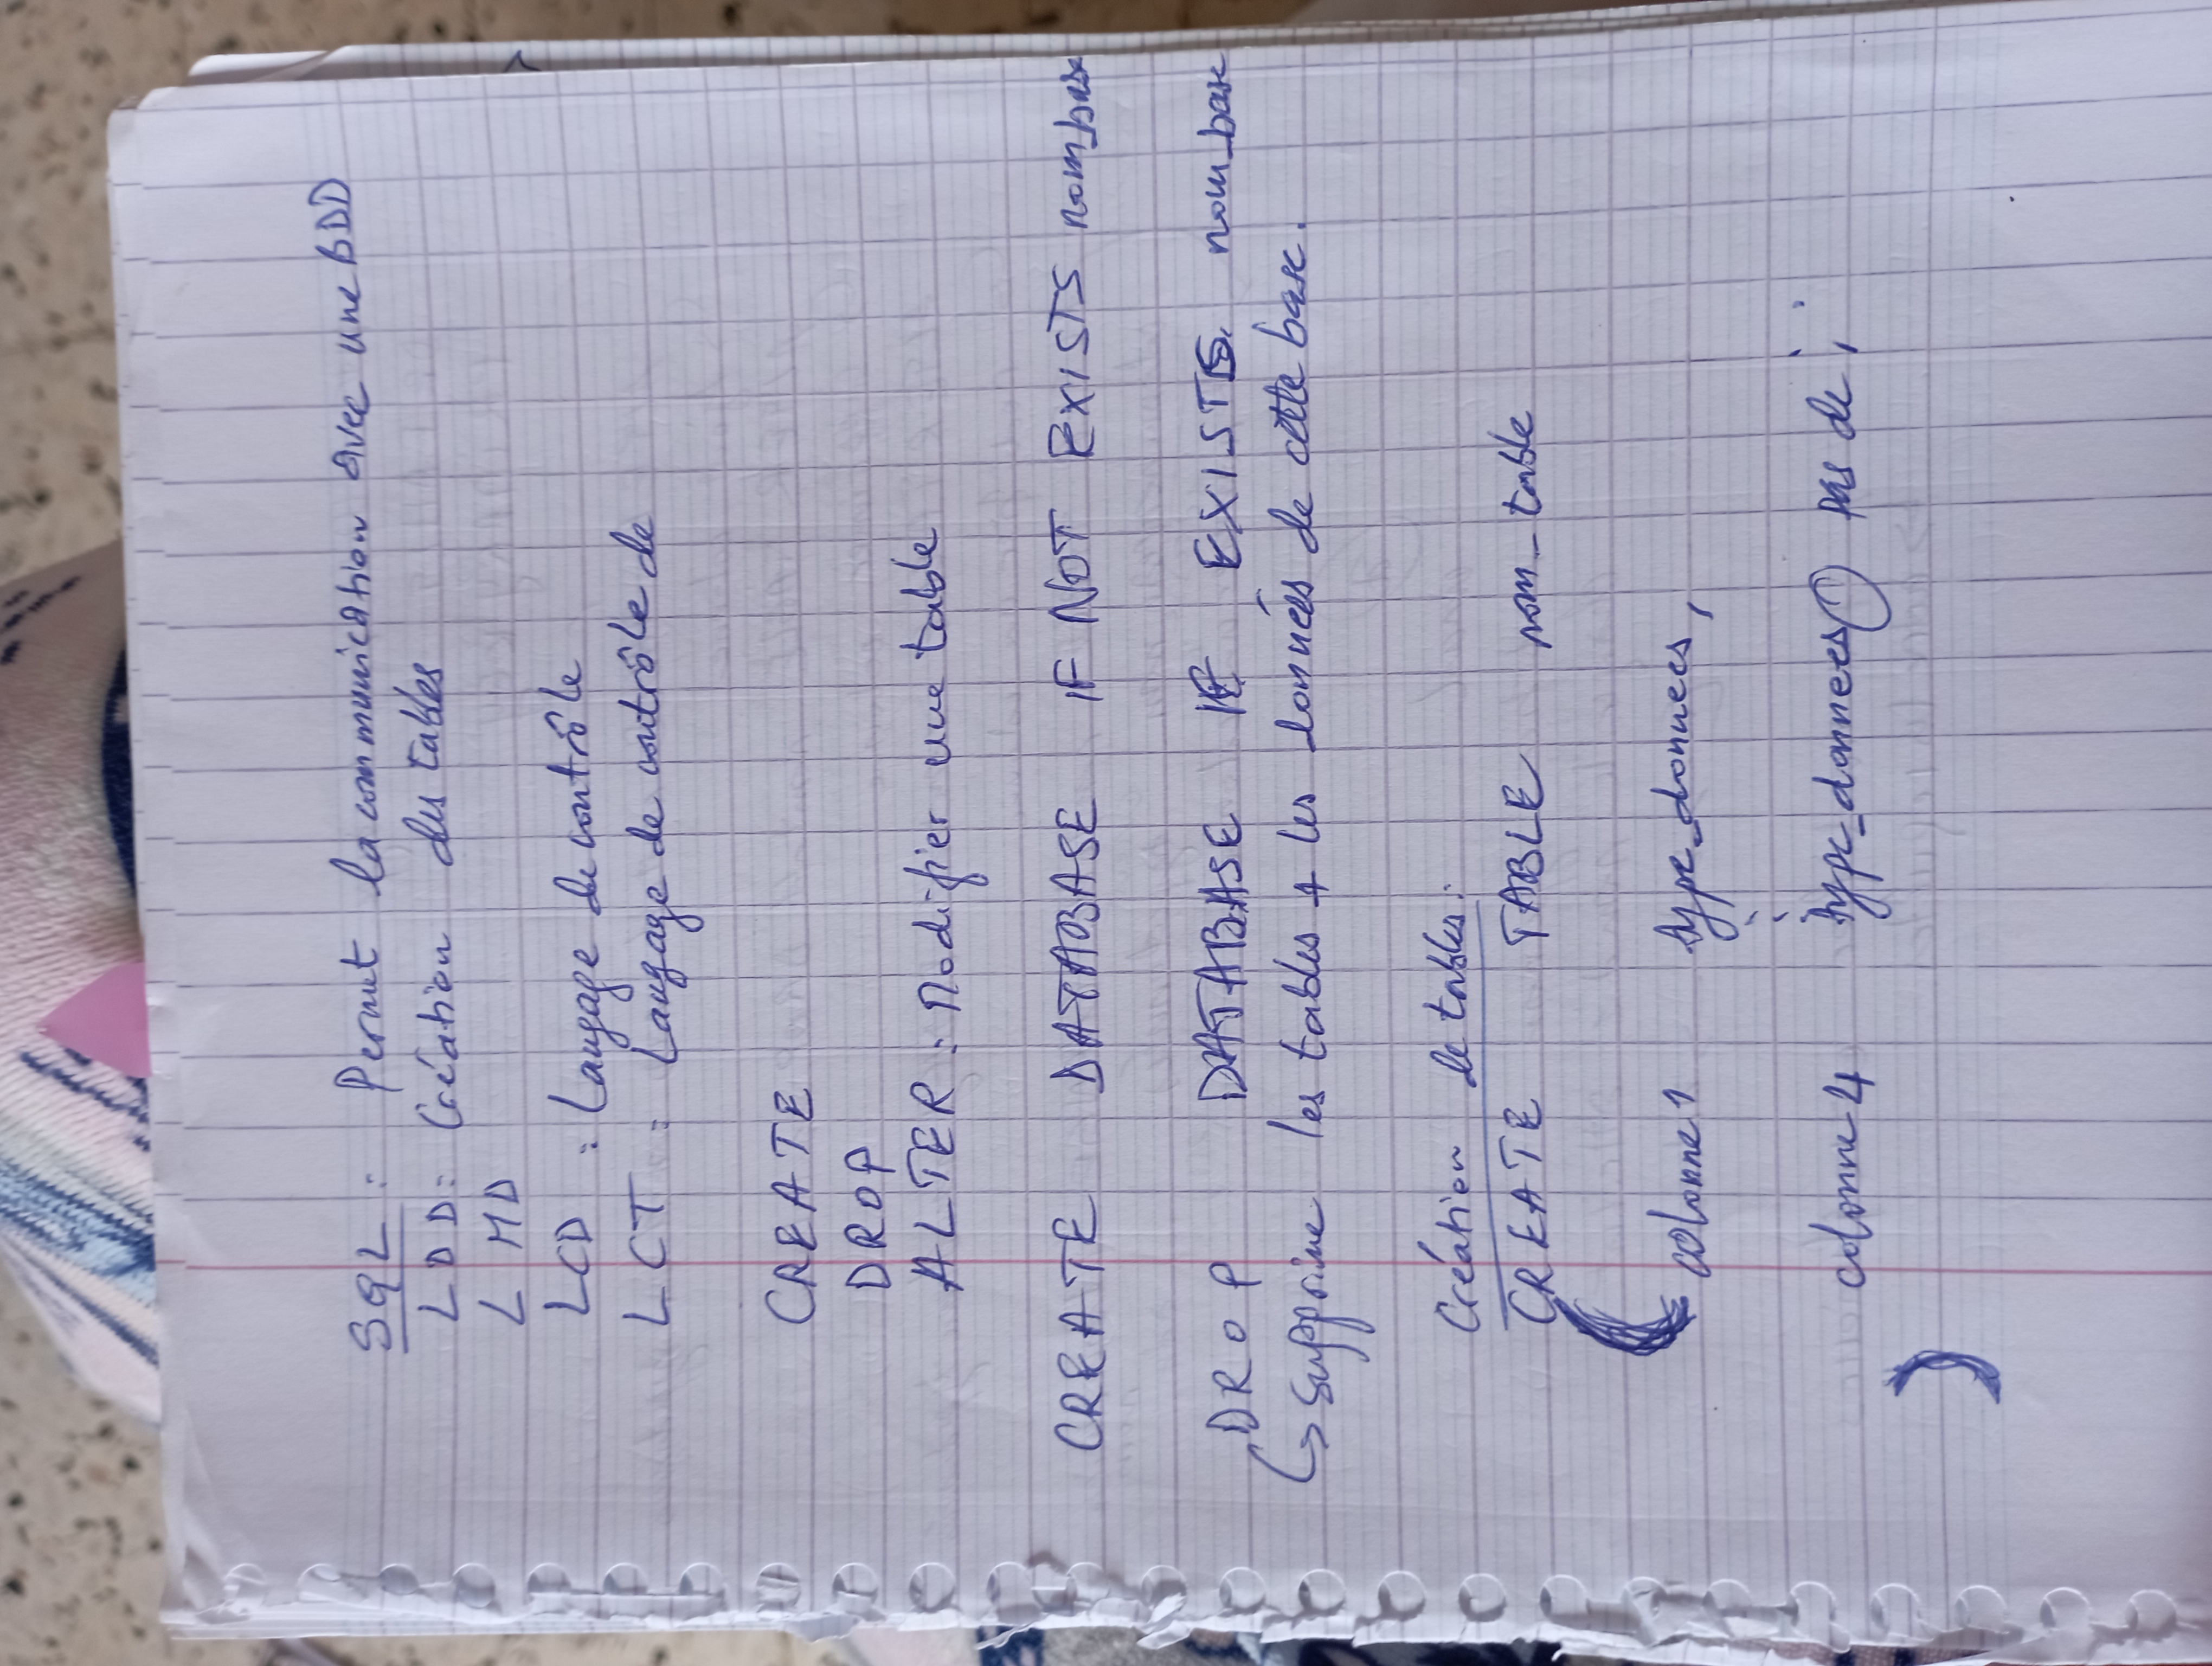 SQL : Permet la communication avec une BDD
LDD : Création des tables
LMD
LCD : Langage de contrôle
LCT : Langage de contrôle de
CREATE
DROP
ALTER : Modifier une table
CREATE DATABASE IF NOT EXISTS nom_base
DROP DATABASE IF EXISTS nom_base
↳ Supprime les tables + les données de cette base.
Création de tables :
CREATE TABLE nom_table
(
colonne 1 type_donnees ,
⋮
colonne 4 type_donnees pas de ;
)